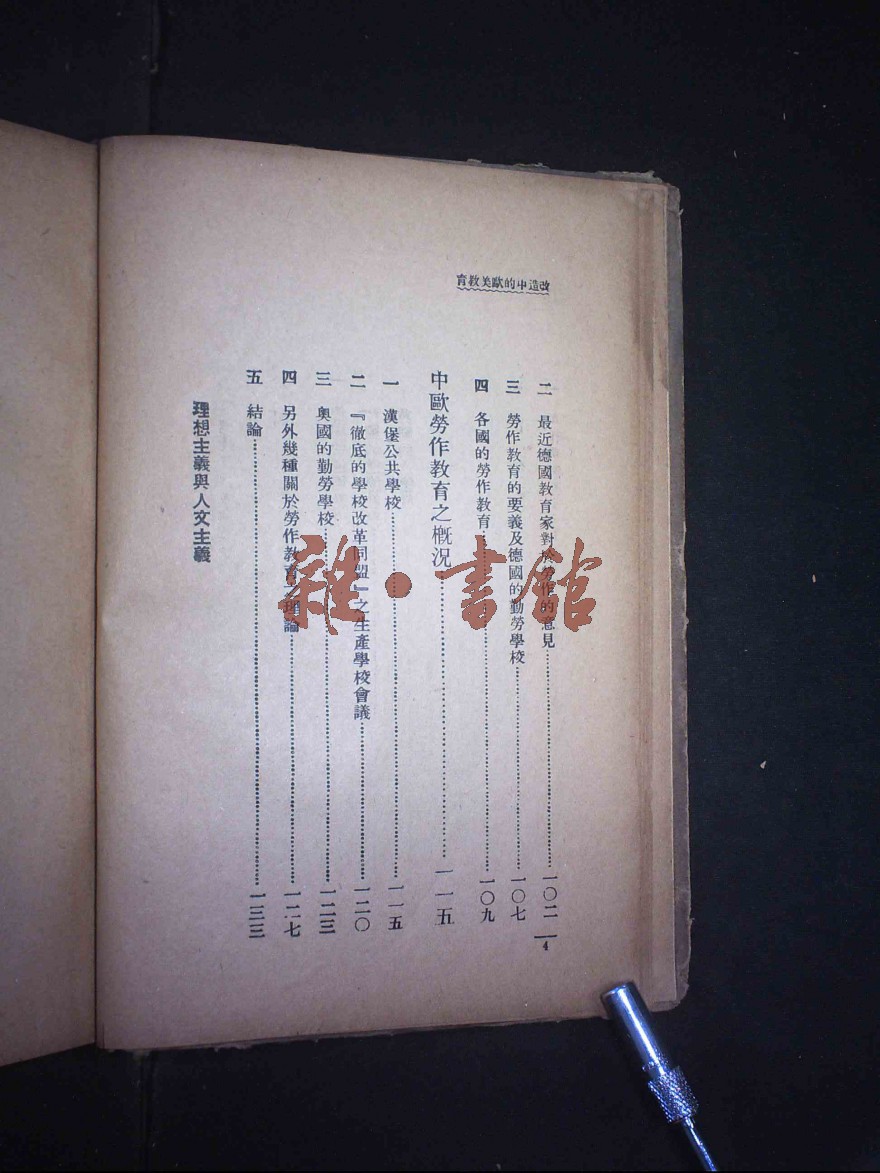 改造中的歐美教育
二 最近德國教育家對於勞作的意見……一〇二
三 勞作教育的要義及德國的勤勞學校……一〇七
四 各國的勞作教育……一〇九
中歐勞作教育之概況……一一五
一 漢堡公共學校……一一五
二 『徹底的學校改革同盟』之生產學校會議……一二〇
三 奧國的勤勞學校……一二三
四 另外幾種關於勞作教育之理論……一二七
五 結論……一三三
理想主義與人文主義
4
雜·書館